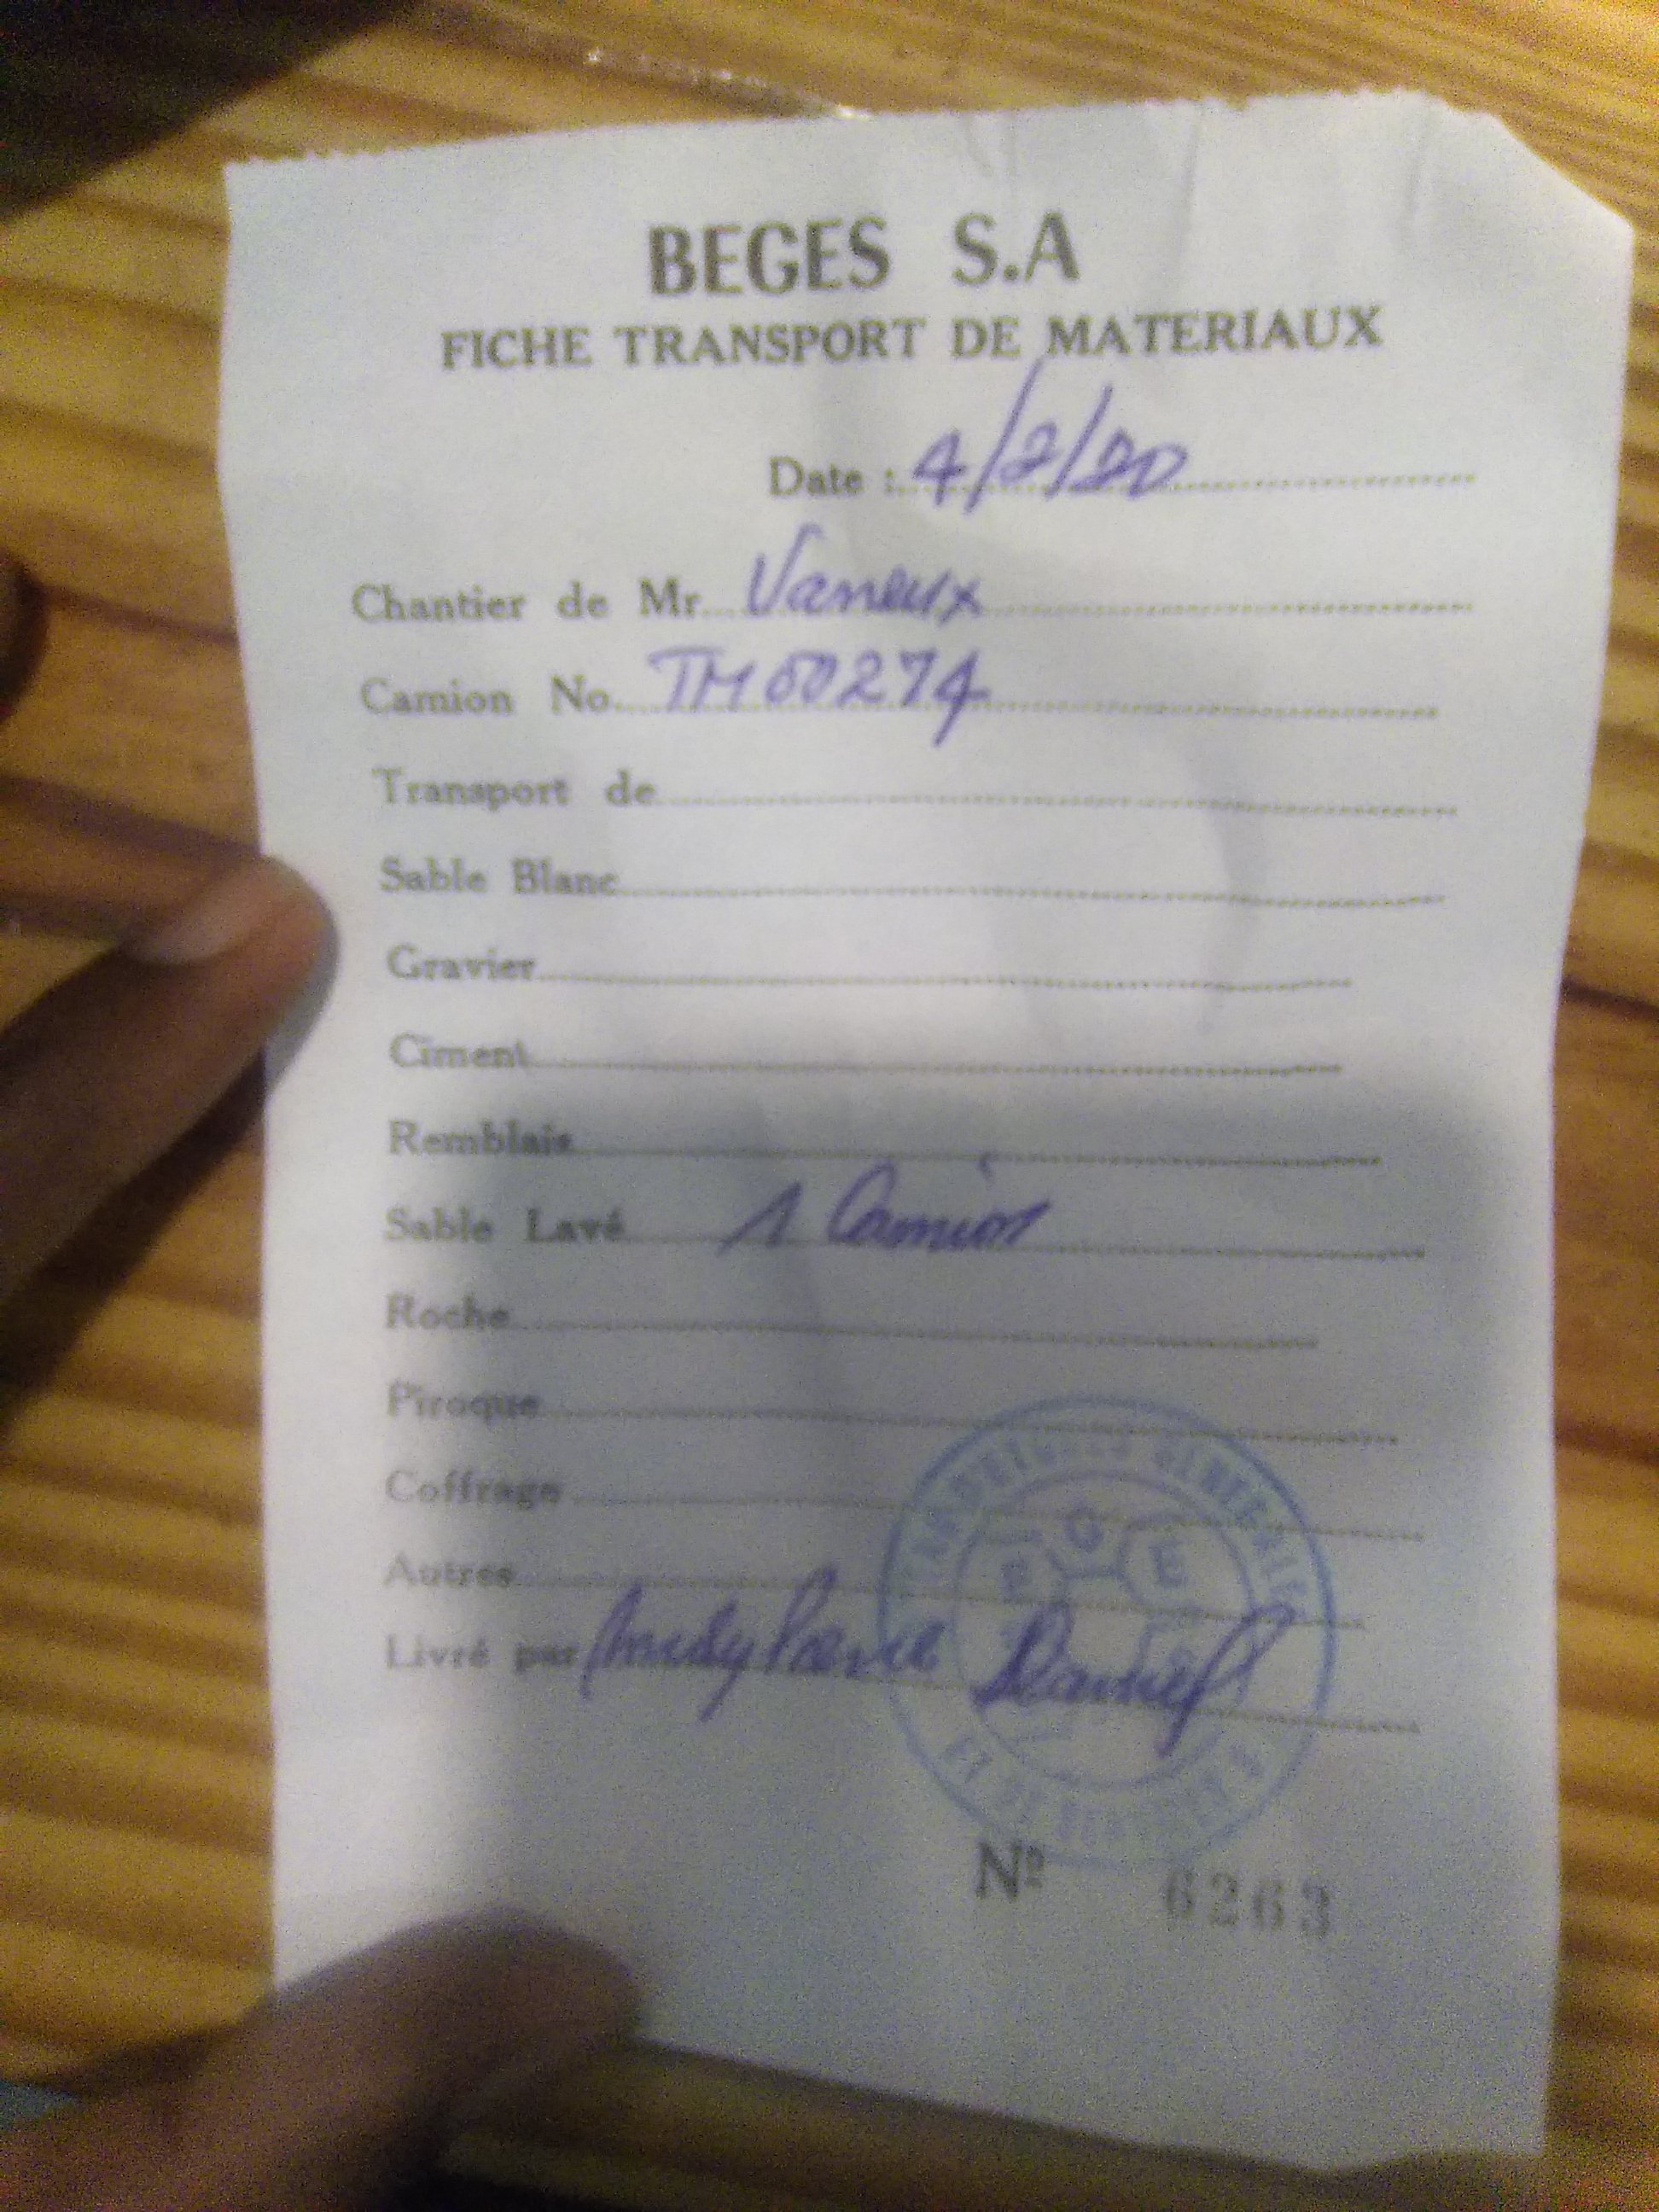 BEGES S.A
FICHE TRANSPORT DE MATERIAUX
Date : 4/2/20
Chantier de Mr Vaneux
Camion No. TM00274
Transport de
Sable Blanc
Gravier
Ciment
Remblais
Sable Lavé 1 Camion
Roche
Piroque
Coffrage
Autres
Livré par Daniel
G E
ET DE
Nº 6263